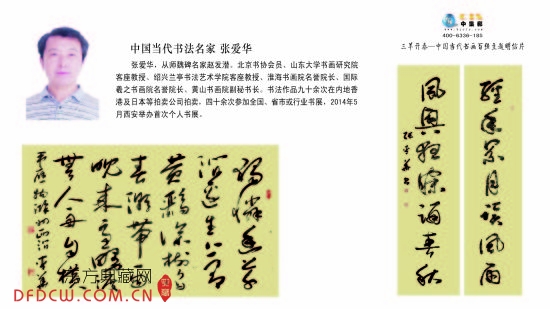 中国当代书法名家 张爱华
张爱华、从师魏碑名家赵发潜、北京书协会员、山东大学书画研究院
客座教授、绍兴兰亭书法艺术学院客座教授、淮海书画院名誉院长、国际
羲之书画院名誉院长、黄山书画院副秘书长。书法作品九十余次在内地香
港及日本等拍卖公司拍卖。四十余次参加全国、省市或行业书展，2014年5
月西安举办首次个人书展。
400-6336-185
三羊开泰—中国当代书画百强主题明信片
独怜幽草
涧边生上有
黄鹂深树鸣
春潮带雨
晚来急野渡
无人舟自横
经年累月谈风雨
诵春秋
东方典藏网
DFDCW.COM.CN